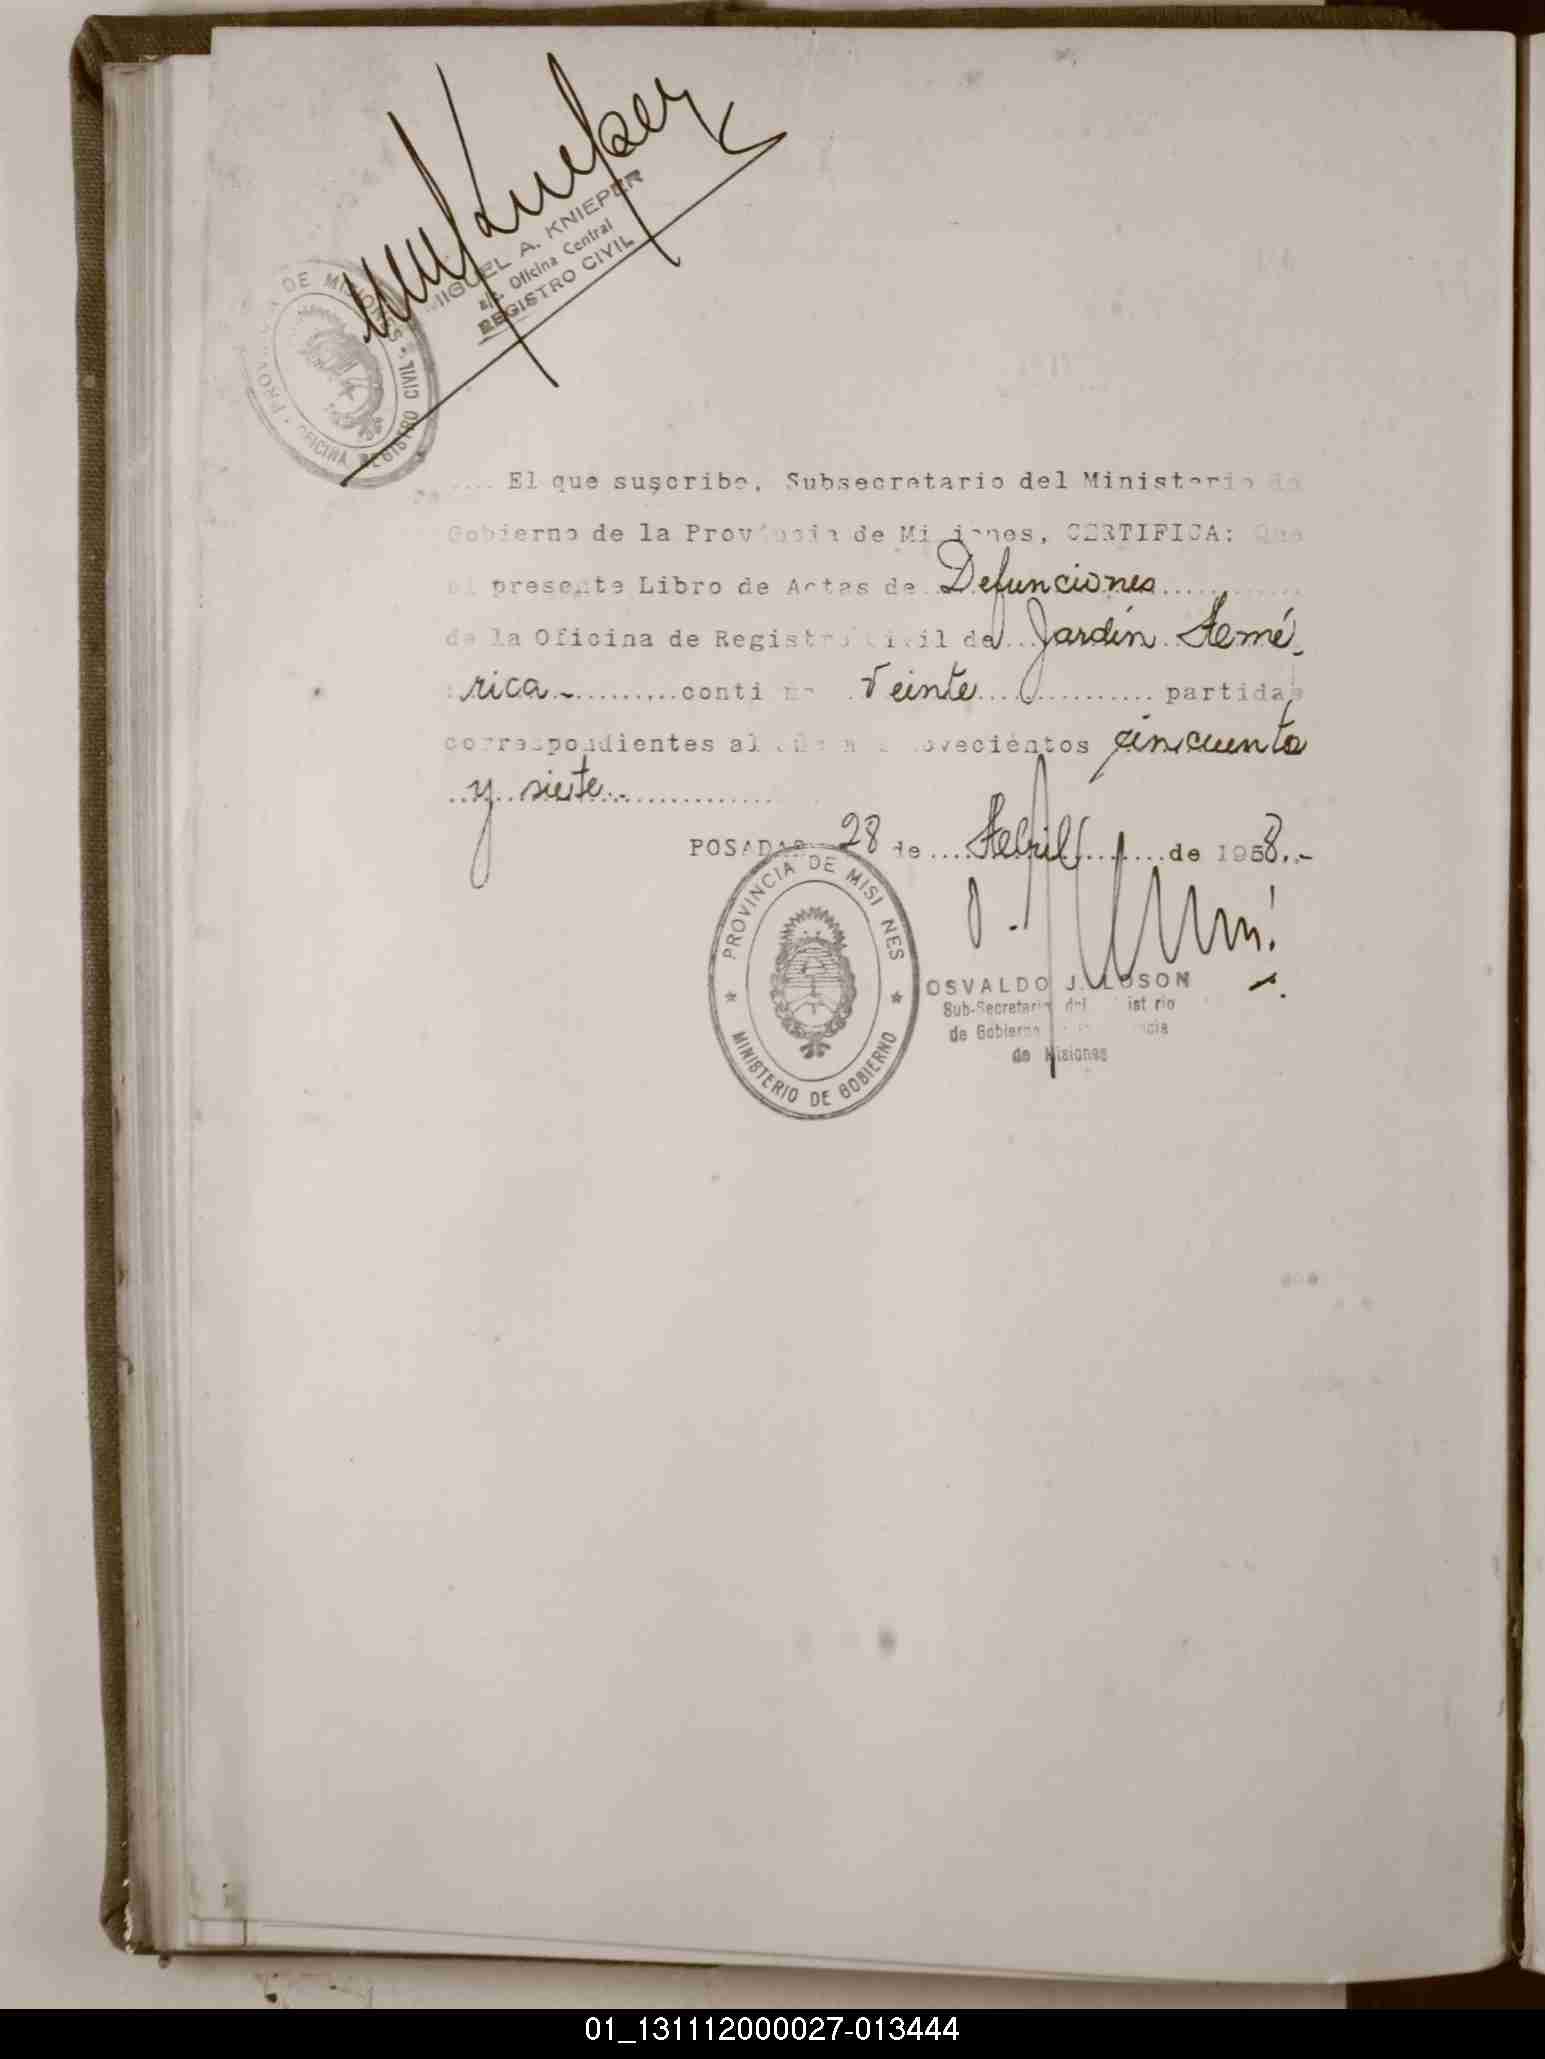 MIGUEL A. KNIEPER
a/c. Oficina Central
REGISTRO CIVIL
DE MISIONES
OFICINA REGISTRO CIVIL
El que suscribe, Subsecretario del Ministerio de
Gobierno de la Provincia de Misiones, CERTIFICA: Que
el presente Libro de Actas de Defunciones
de la Oficina de Registro Civil de Jardín Amé-
rica.- conti ne Veinte partidas
correspondientes al año novecientos cincuenta
y siete.-
POSADAS 28 de Abril de 1958.-
PROVINCIA DE MISI NES
MINISTERIO DE GOBIERNO
OSVALDO J.
Sub-Secretario del ist rio
de Gobierno
de Misiones
01_131112000027-013444